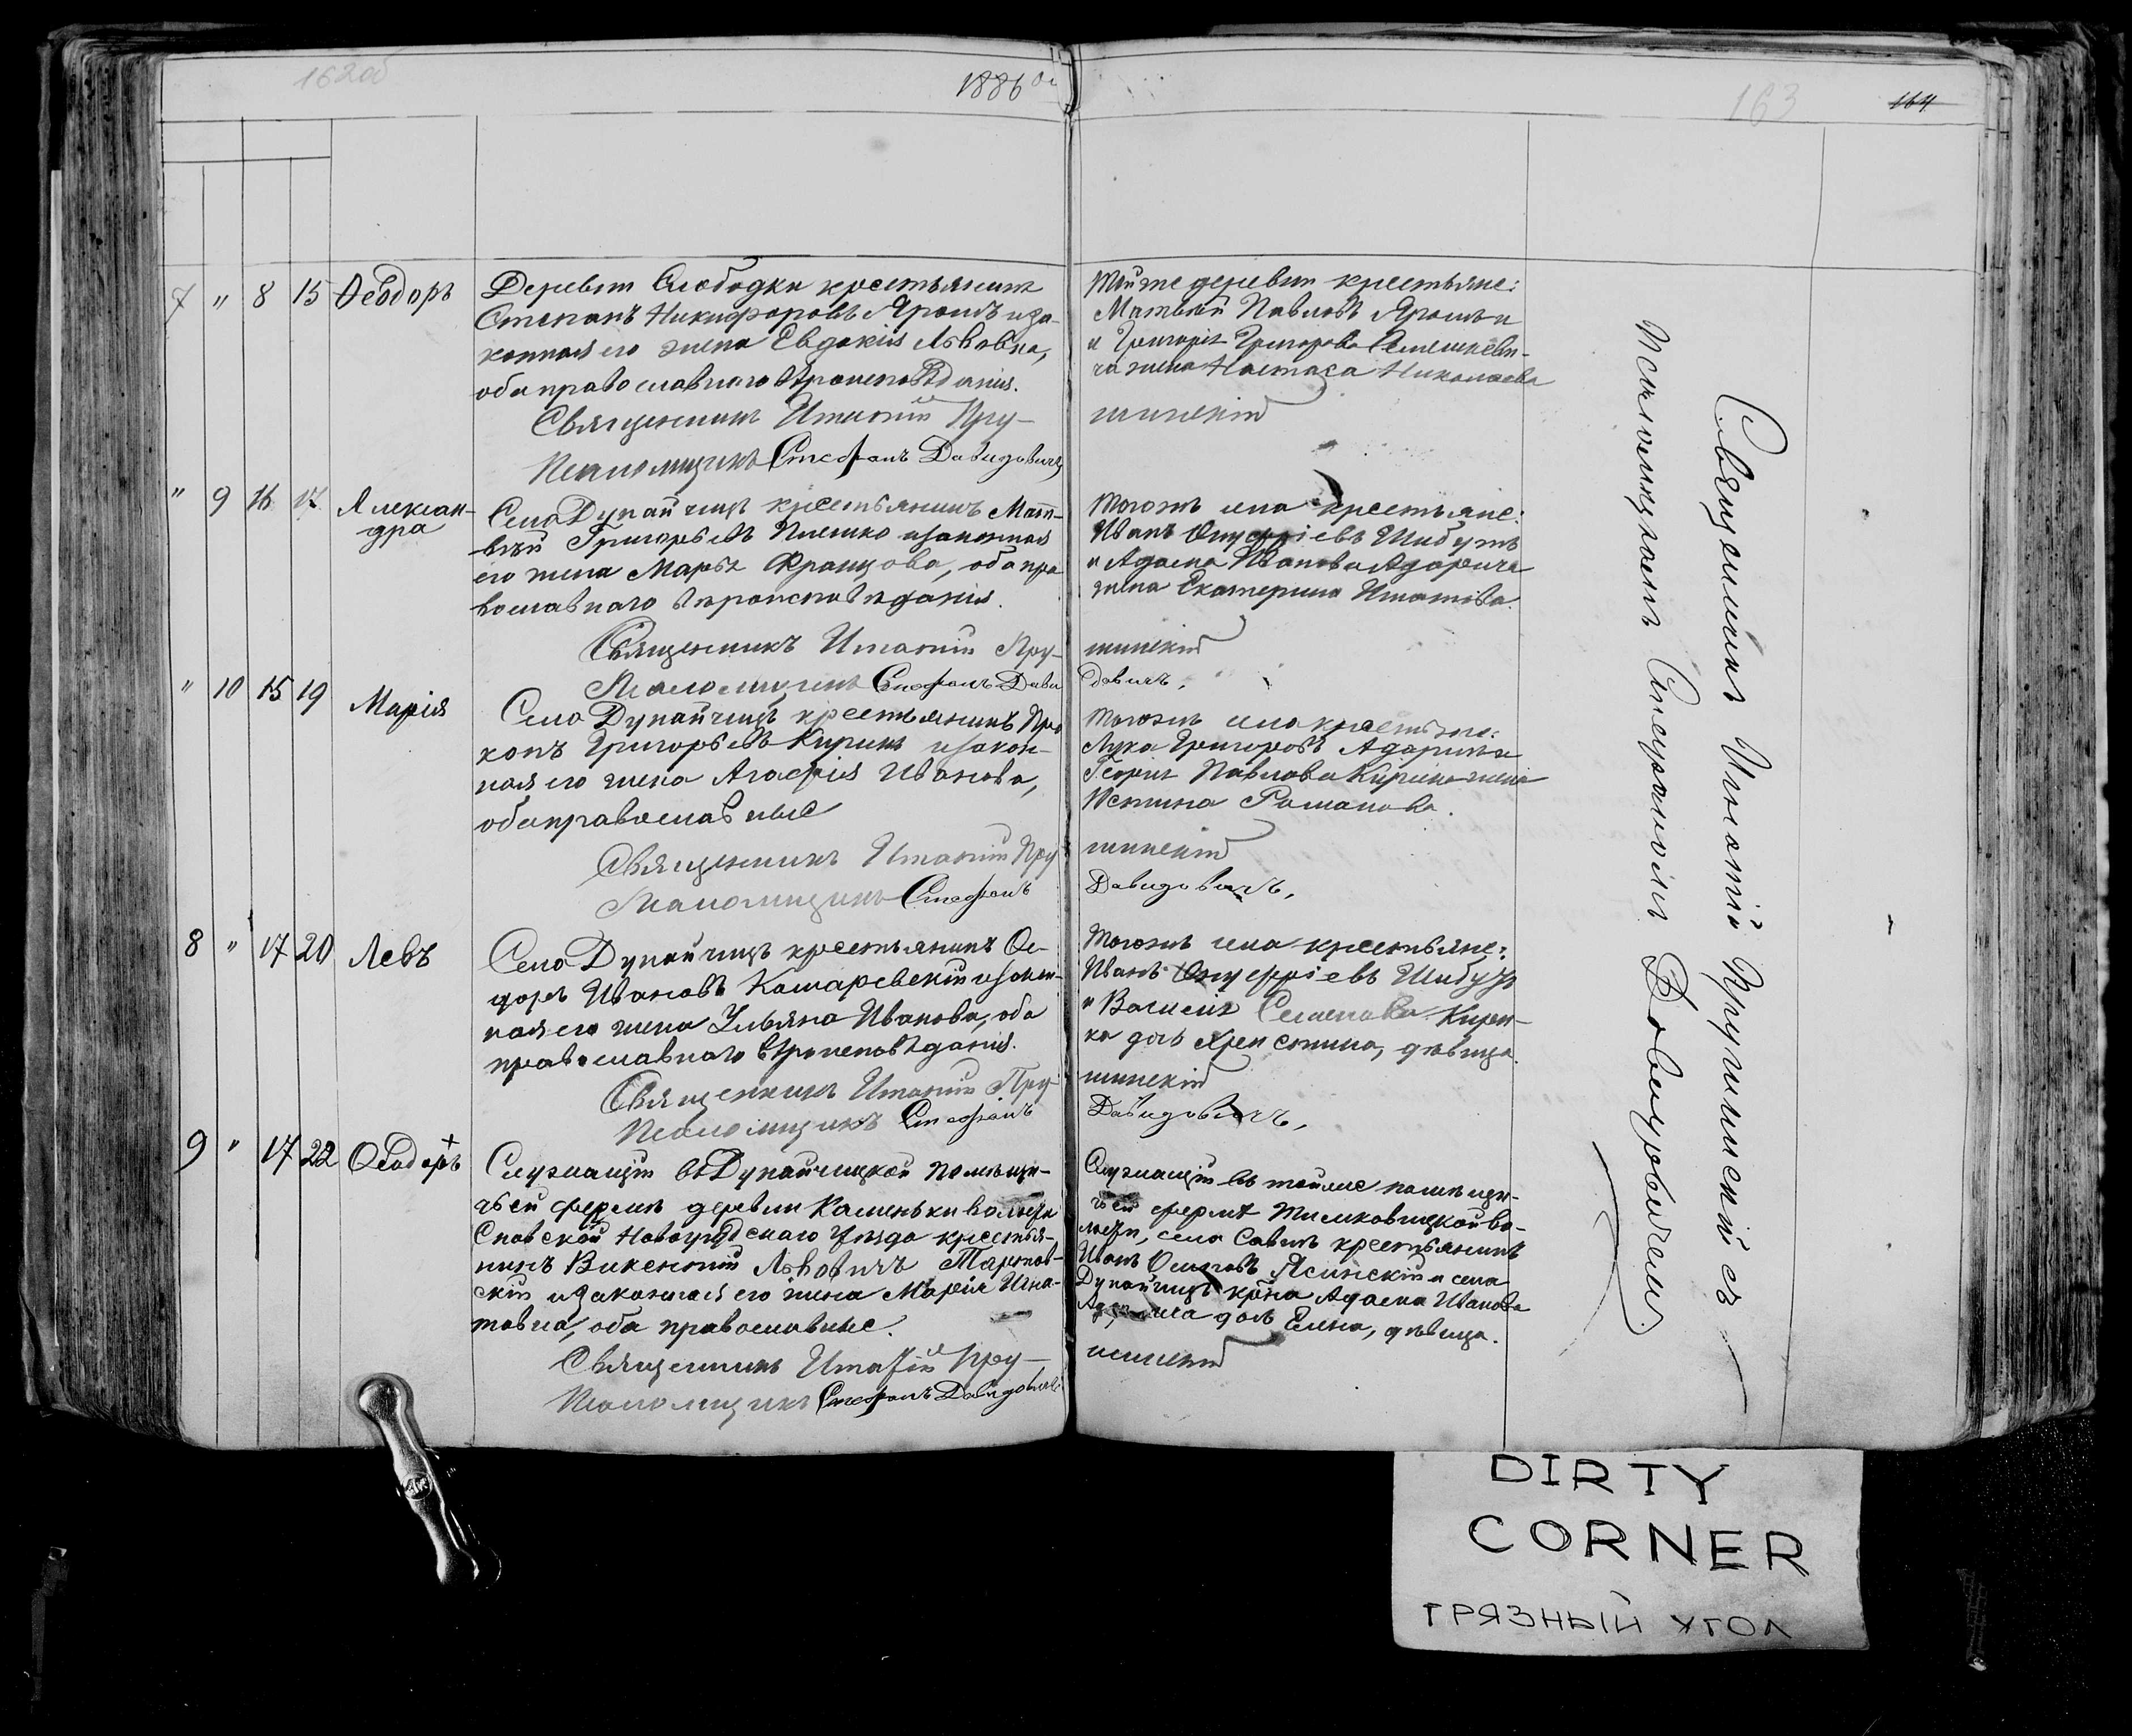 162об
1886 го
163
164
7 " 8 15 Ѳеодоръ
Деревни Слободки крестьянинъ
Степанъ Никифоровъ Ярошъ и за-
конная его жена Евдокія Львовна,
оба православнаго вѣроисповѣданія.
Священникъ Игнатій Пру-
Псаломщикъ Стефанъ Давидовичъ
Тойже деревни крестьяне:
Матвей Павловъ Ярошъ и
и Григорія Григорова
жена Настаса Николаева
шинскій
" 9 16 17 Алексан-
дра
Села Дунайчицъ крестьянинъ Мат-
вѣй Григорьевъ Плешко и законная
его жена Марья Францова, оба пра
вославнаго вѣроисповѣданія.
Священникъ Игнатій Пру-
Псаломщикъ Стефанъ Дави
Тогожъ села крестьяне:
Иванъ Онуфріевъ Шибутъ
и Адама Иванова Адарича
жена Екатерина Игнатова.
шинскій
довичъ.
" 10 15 19 Марія
Села Дунайчицъ крестьянинъ Про
копъ Григорьевъ Киринъ и закон-
ная его жена Агафія Иванова,
оба православные
Священникъ Игнатій Пру
Псаломщикъ Стефанъ
Тогожъ села крестьяне:
Лука Григоровъ Адаричъ и
Георгія Павлова Кирина жена
Устина Романова.
шинскій
Давидовичъ.
8 " 17 20 Левъ
Села Дунайчицъ крестьянинъ Ѳе-
доръ Ивановъ Комаревскій и закон-
ная его жена Ульяна Иванова, оба
православнаго вѣроисповѣданія.
Священникъ Игнатій Пру-
Псаломщикъ Стефанъ
Тогожъ села крестьяне:
Иванъ Онуфріевъ Шибутъ
и Василія Семенова Кирин-
ка дочь Христина, дѣвица.
шинскій
Давидовичъ.
9 " 17 22 Ѳеодоръ +
Служащій въ Дунайчицкой помѣщи-
чьей фермѣ деревни Каменьки волости
Сновской Новогрудскаго уѣзда крестья-
нинъ Викентій Львовичъ
скій и законная его жена Марія Игна-
товна, оба православные.
Священникъ Игнатій Пру-
Псаломщикъ Стефанъ Давидовичъ
Служащій въ тойже помѣщи-
чьей фермѣ Тимковицкой во-
лости, села Савичъ крестьянинъ
Иванъ Осиповъ Ясинскій и села
Дунайчицъ крѣна Адама Иванова
Адарича дочь Елена, дѣвица.
шинскій
Священникъ Игнатій Прушинскій съ
Псаломщикомъ Стефаномъ Давидовичемъ.
DIRTY
CORNER
ГРЯЗНЫЙ УГОЛ